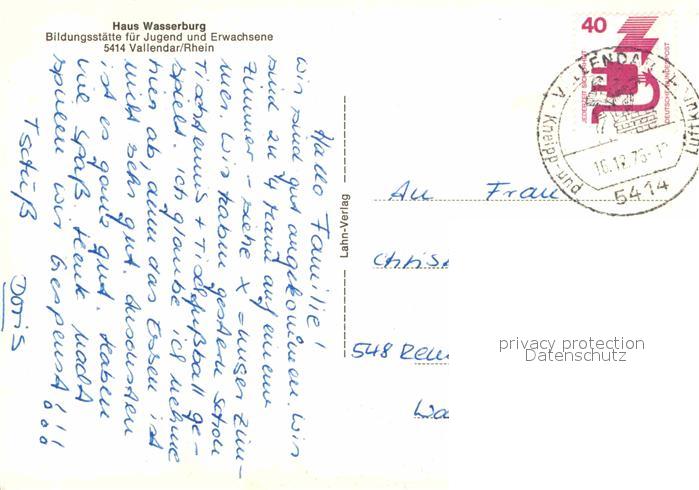 Haus Wasserburg
Bildungsstätte für Jugend und Erwachsene
5414 Vallendar/Rhein
Hallo Familie!
Wir sind gut angekommen. Wir
sind zu 4 Mann auf einem
Zimmer - siehe X = unser Zim-
mer. Wir haben gestern schon
Tischtennis + Tischfußball ge-
spielt. Ich glaube ich nehme
hier ab, denn das Essen ist
nicht sehr gut. Ansonsten
ist es ganz gut. Haben
viel Spaß. Heute Nacht
spielen wir Gespenst!!!
Tschüß
Doris
Lahn-Verlag
40
JEDERZEIT SICHERHEIT
DEUTSCHE BUNDESPOST
VALLENDAR
Kneipp- und
Luftkur
16.12.76
5414
An Frau
Christ
548 Rem
Wa
privacy protection
Datenschutz